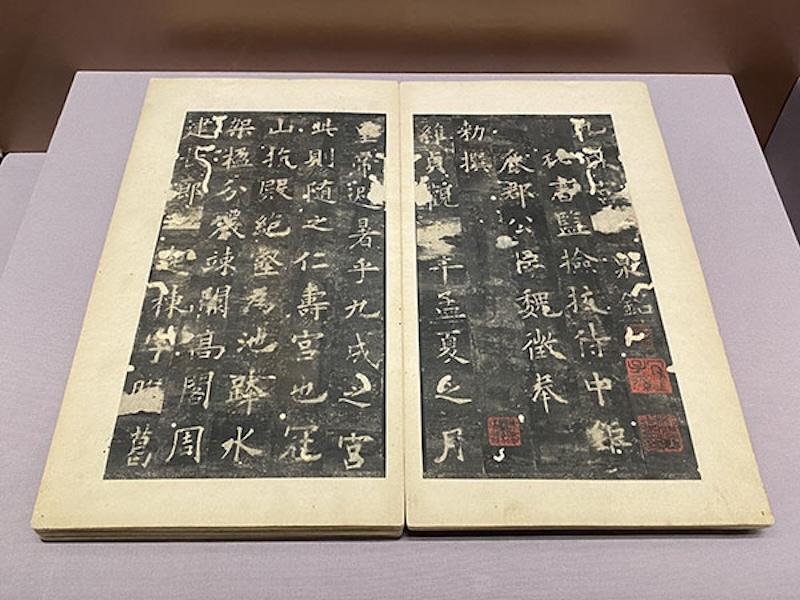 九泉銘
秘書監檢挍侍中鉅
鹿郡公臣魏徵奉
勑撰
維貞觀年孟夏之月
皇帝避暑乎九成之宮
此則隨之仁壽宮也冠
山抗殿絕壑為池跨水
架楹分巖竦闕高閣周
建廊起棟宇膠葛